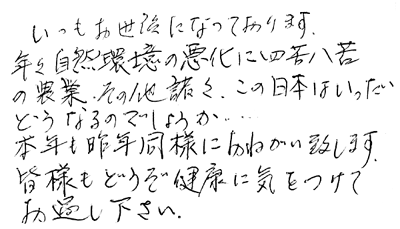 いつもお世話になっております.
年々自然環境の悪化に四苦八苦
の農業.その他諸々.この日本はいったい
どうなるのでしょうか‥‥
本年も昨年同様におねがい致します.
皆様もどうぞ健康に気をつけて
お過し下さい.